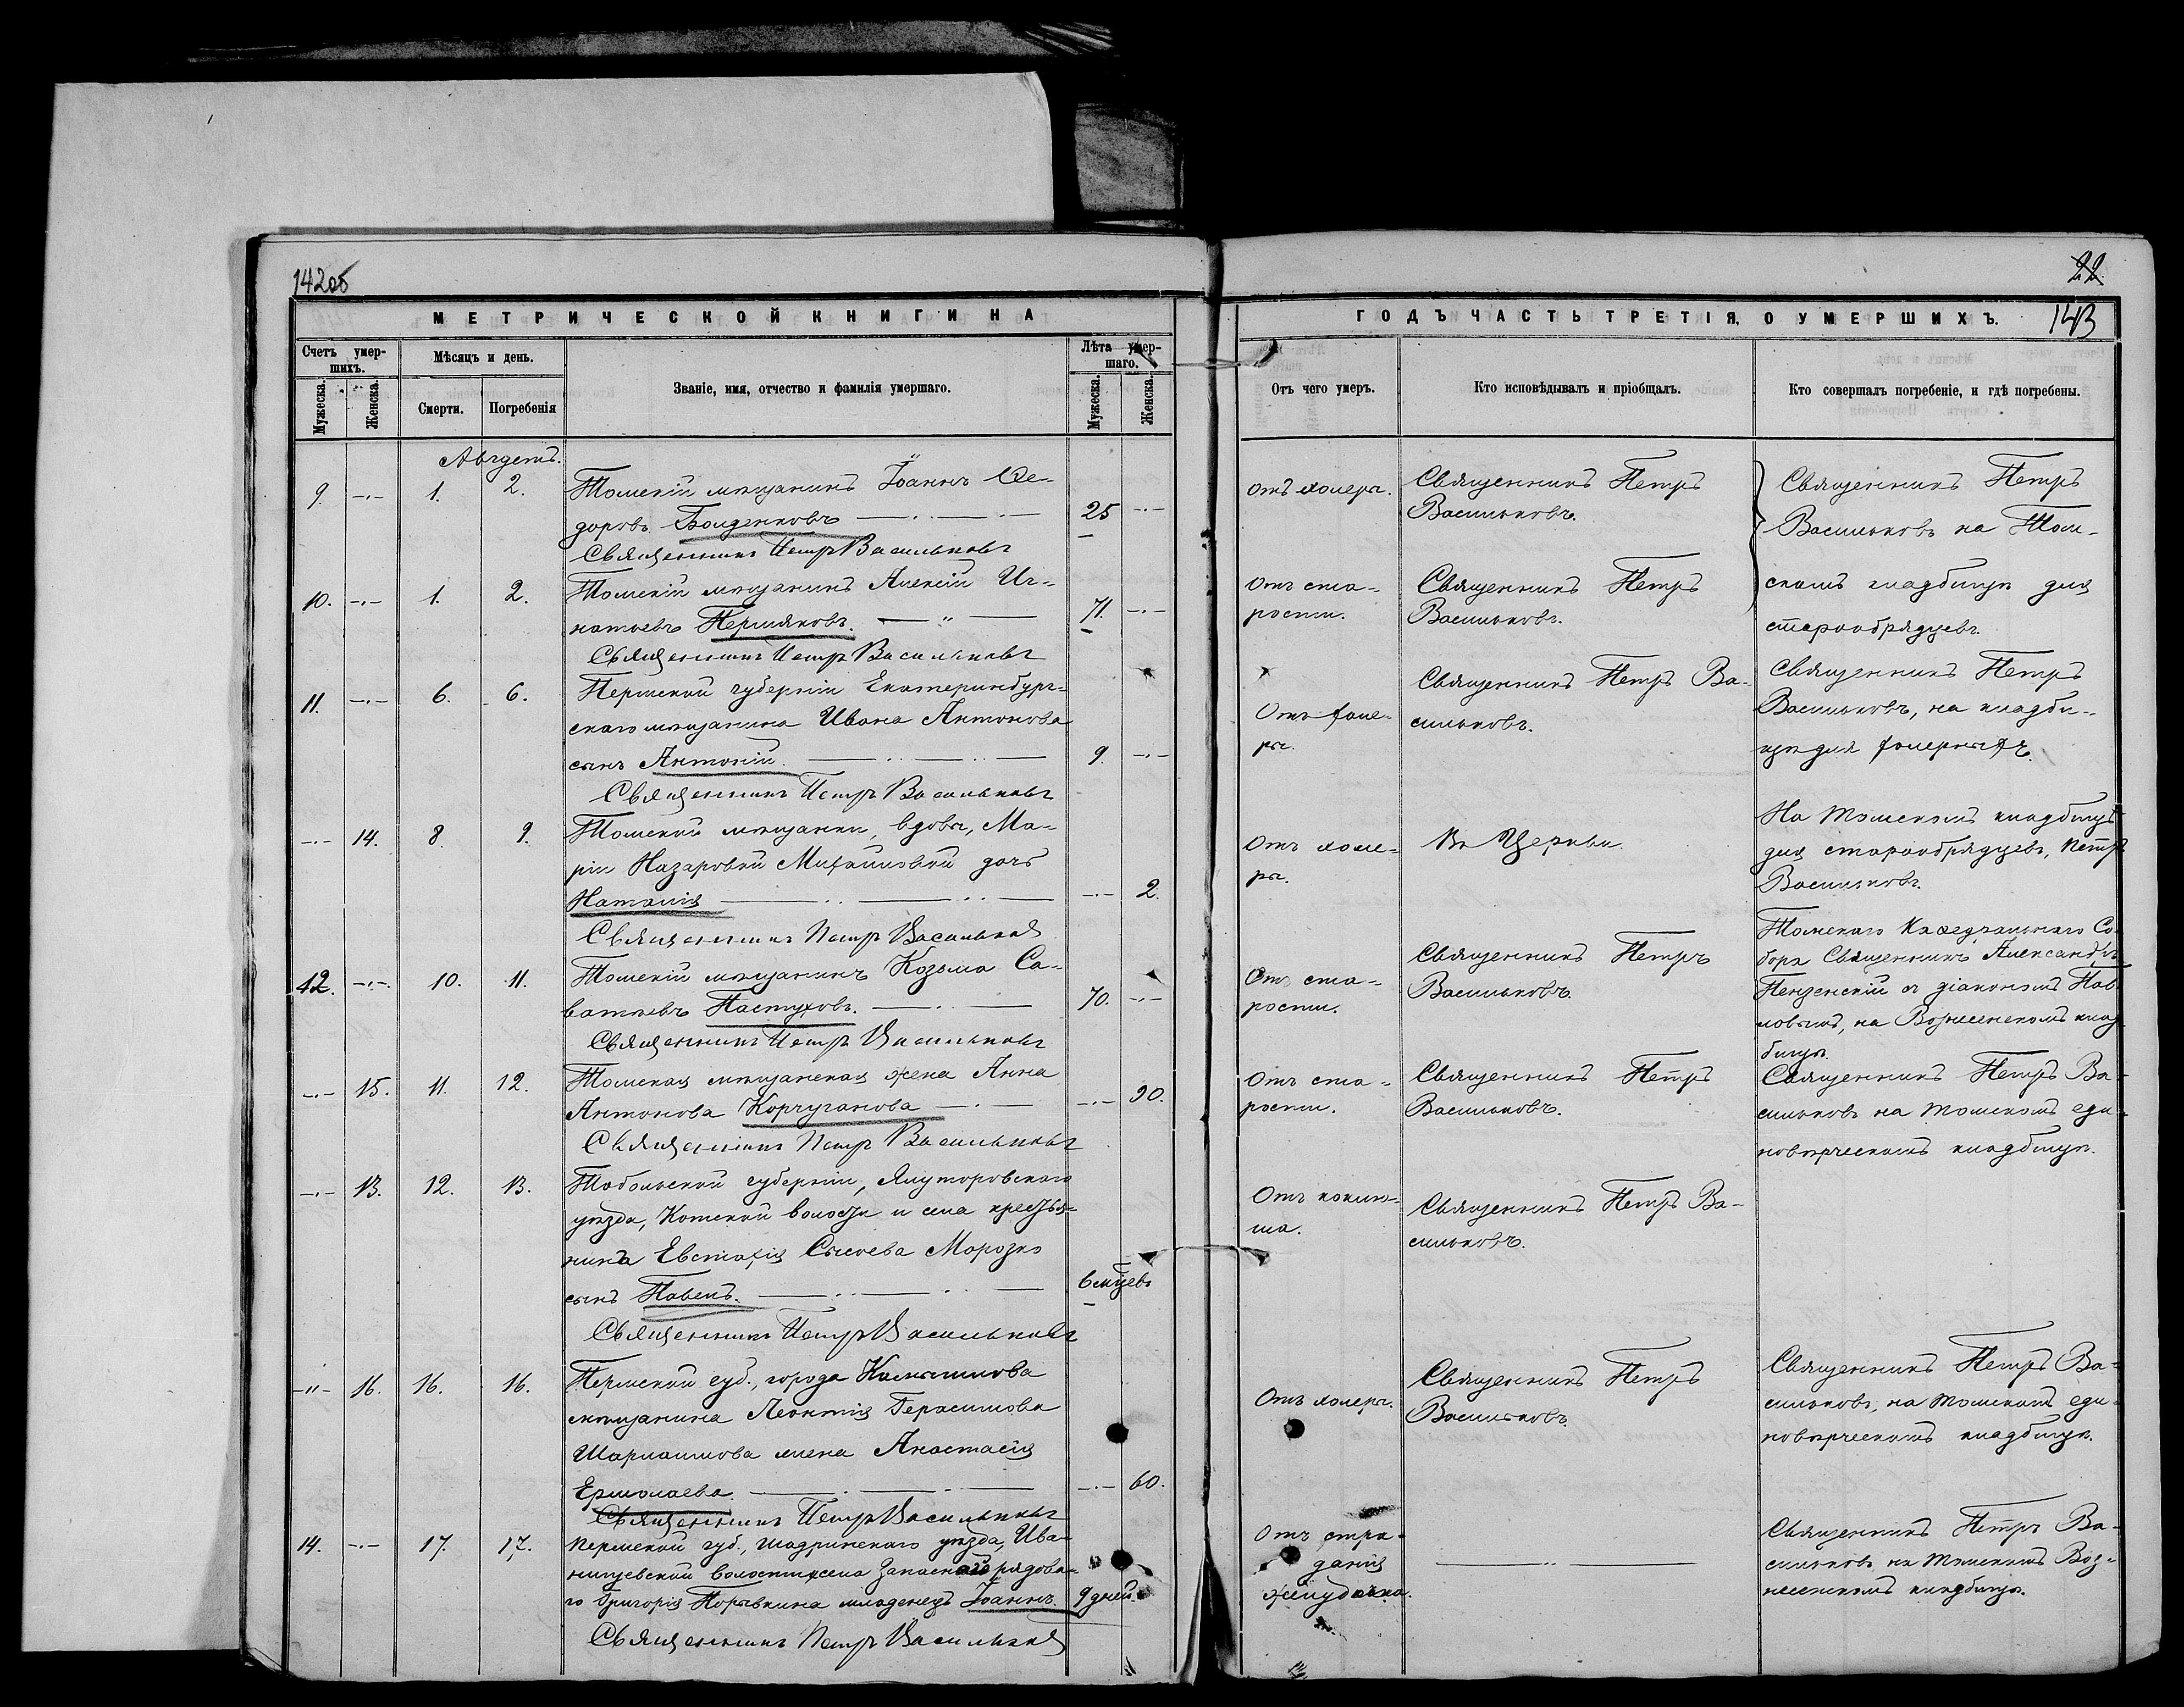 142об
МЕТРИЧЕСКОЙ КНИГИ НА
Счетъ умер-
шихъ.
Мужеска.
Женска.
Мѣсяцъ и день.
Смерти.
Погребенія
Званіе, имя, отчество и фамилія умершаго.
Лѣта умер-
шаго.
Мужеска.
Женска.
Августъ.
9. 1. 2. Томскій мѣщанинъ Іоаннъ Ѳе-
доровъ 25
Священникъ Петръ Васильковъ
10. 1. 2. Томскій мѣщанинъ Алексій Иг-
натьевъ Пермяковъ. 71.
Священникъ Петръ Васильковъ
11. 6. 6. Пермской губерніи Екатеринбург-
скаго мѣщанина Ивана Антонова
сынъ Антоній. 9.
Священникъ Петръ Васильковъ
14. 8. 9. Томской мѣщанки, вдовы, Ма-
ріи Назаровой Михайловой дочь
Наталія 2.
Священникъ Петръ Васильковъ
12. 10. 11. Томскій мѣщанинъ Козьма Са-
ватѣевъ Пастуховъ. 70.
Священникъ Петръ Васильковъ
15. 11. 12. Томская мѣщанская жена Анна
Антонова Корчуганова 90.
Священникъ Петръ Васильковъ
13. 12. 13. Тобольской губерніи, Ялуторовскаго
уѣзда, Комской волости и села крестья-
нина Евстафія Сысоева Морозко
сынъ Павелъ. 6 мѣцевъ
Священникъ Петръ Васильковъ
16. 16. 16. Пермской губ., города Камышлова
мѣщанина Леонтія Герасимова
жена Анастасія
Ермолаева 60.
Священникъ Петръ Васильковъ
14. 17. 17. Пермской губ., Шадринскаго уѣзда, Ива-
нищевской волости села запаснаго рядова-
го Григорія Порывкина младенецъ Іоаннъ. 9 дней
Священникъ Петръ Васильковъ
22
143
ГОДЪ ЧАСТЬ ТРЕТІЯ, О УМЕРШИХЪ.
Отъ чего умеръ.
Кто исповѣдывалъ и пріобщалъ.
Кто совершалъ погребеніе, и гдѣ погребены.
Отъ холеры. Священникъ Петръ
Васильковъ.
Священникъ Петръ
Васильковъ на Том-
скомъ кладбищѣ для
старообрядцевъ.
Отъ ста-
рости.
Священникъ Петръ
Васильковъ.
Отъ холе-
ры.
Священникъ Петръ Ва-
сильковъ.
Священникъ Петръ
Васильковъ, на кладби-
щѣ для холерныхъ.
Отъ холе-
ры.
Въ Церкви.
На Томскомъ кладбищѣ
для старообрядцевъ, Петръ
Васильковъ.
Отъ ста-
рости.
Священникъ Петръ
Васильковъ.
Томскаго Каѳедральнаго Со-
бора Священникъ Александръ
Пензенскій съ діакономъ Пав-
ловымъ, на Вознесенскомъ клад-
бищѣ.
Отъ ста-
рости.
Священникъ Петръ
Васильковъ.
Священникъ Петръ Ва-
сильковъ на Томскомъ еди-
новѣрческомъ кладбищѣ.
Отъ коклю-
ша.
Священникъ Петръ Ва-
сильковъ.
Отъ холеры.
Священникъ Петръ
Васильковъ.
Священникъ Петръ Ва-
сильковъ, на Томскомъ еди-
новѣрческомъ кладбищѣ.
Отъ стра-
данія
желудочка.
Священникъ Петръ Ва-
сильковъ на Томскомъ Воз-
несенскомъ кладбищѣ.